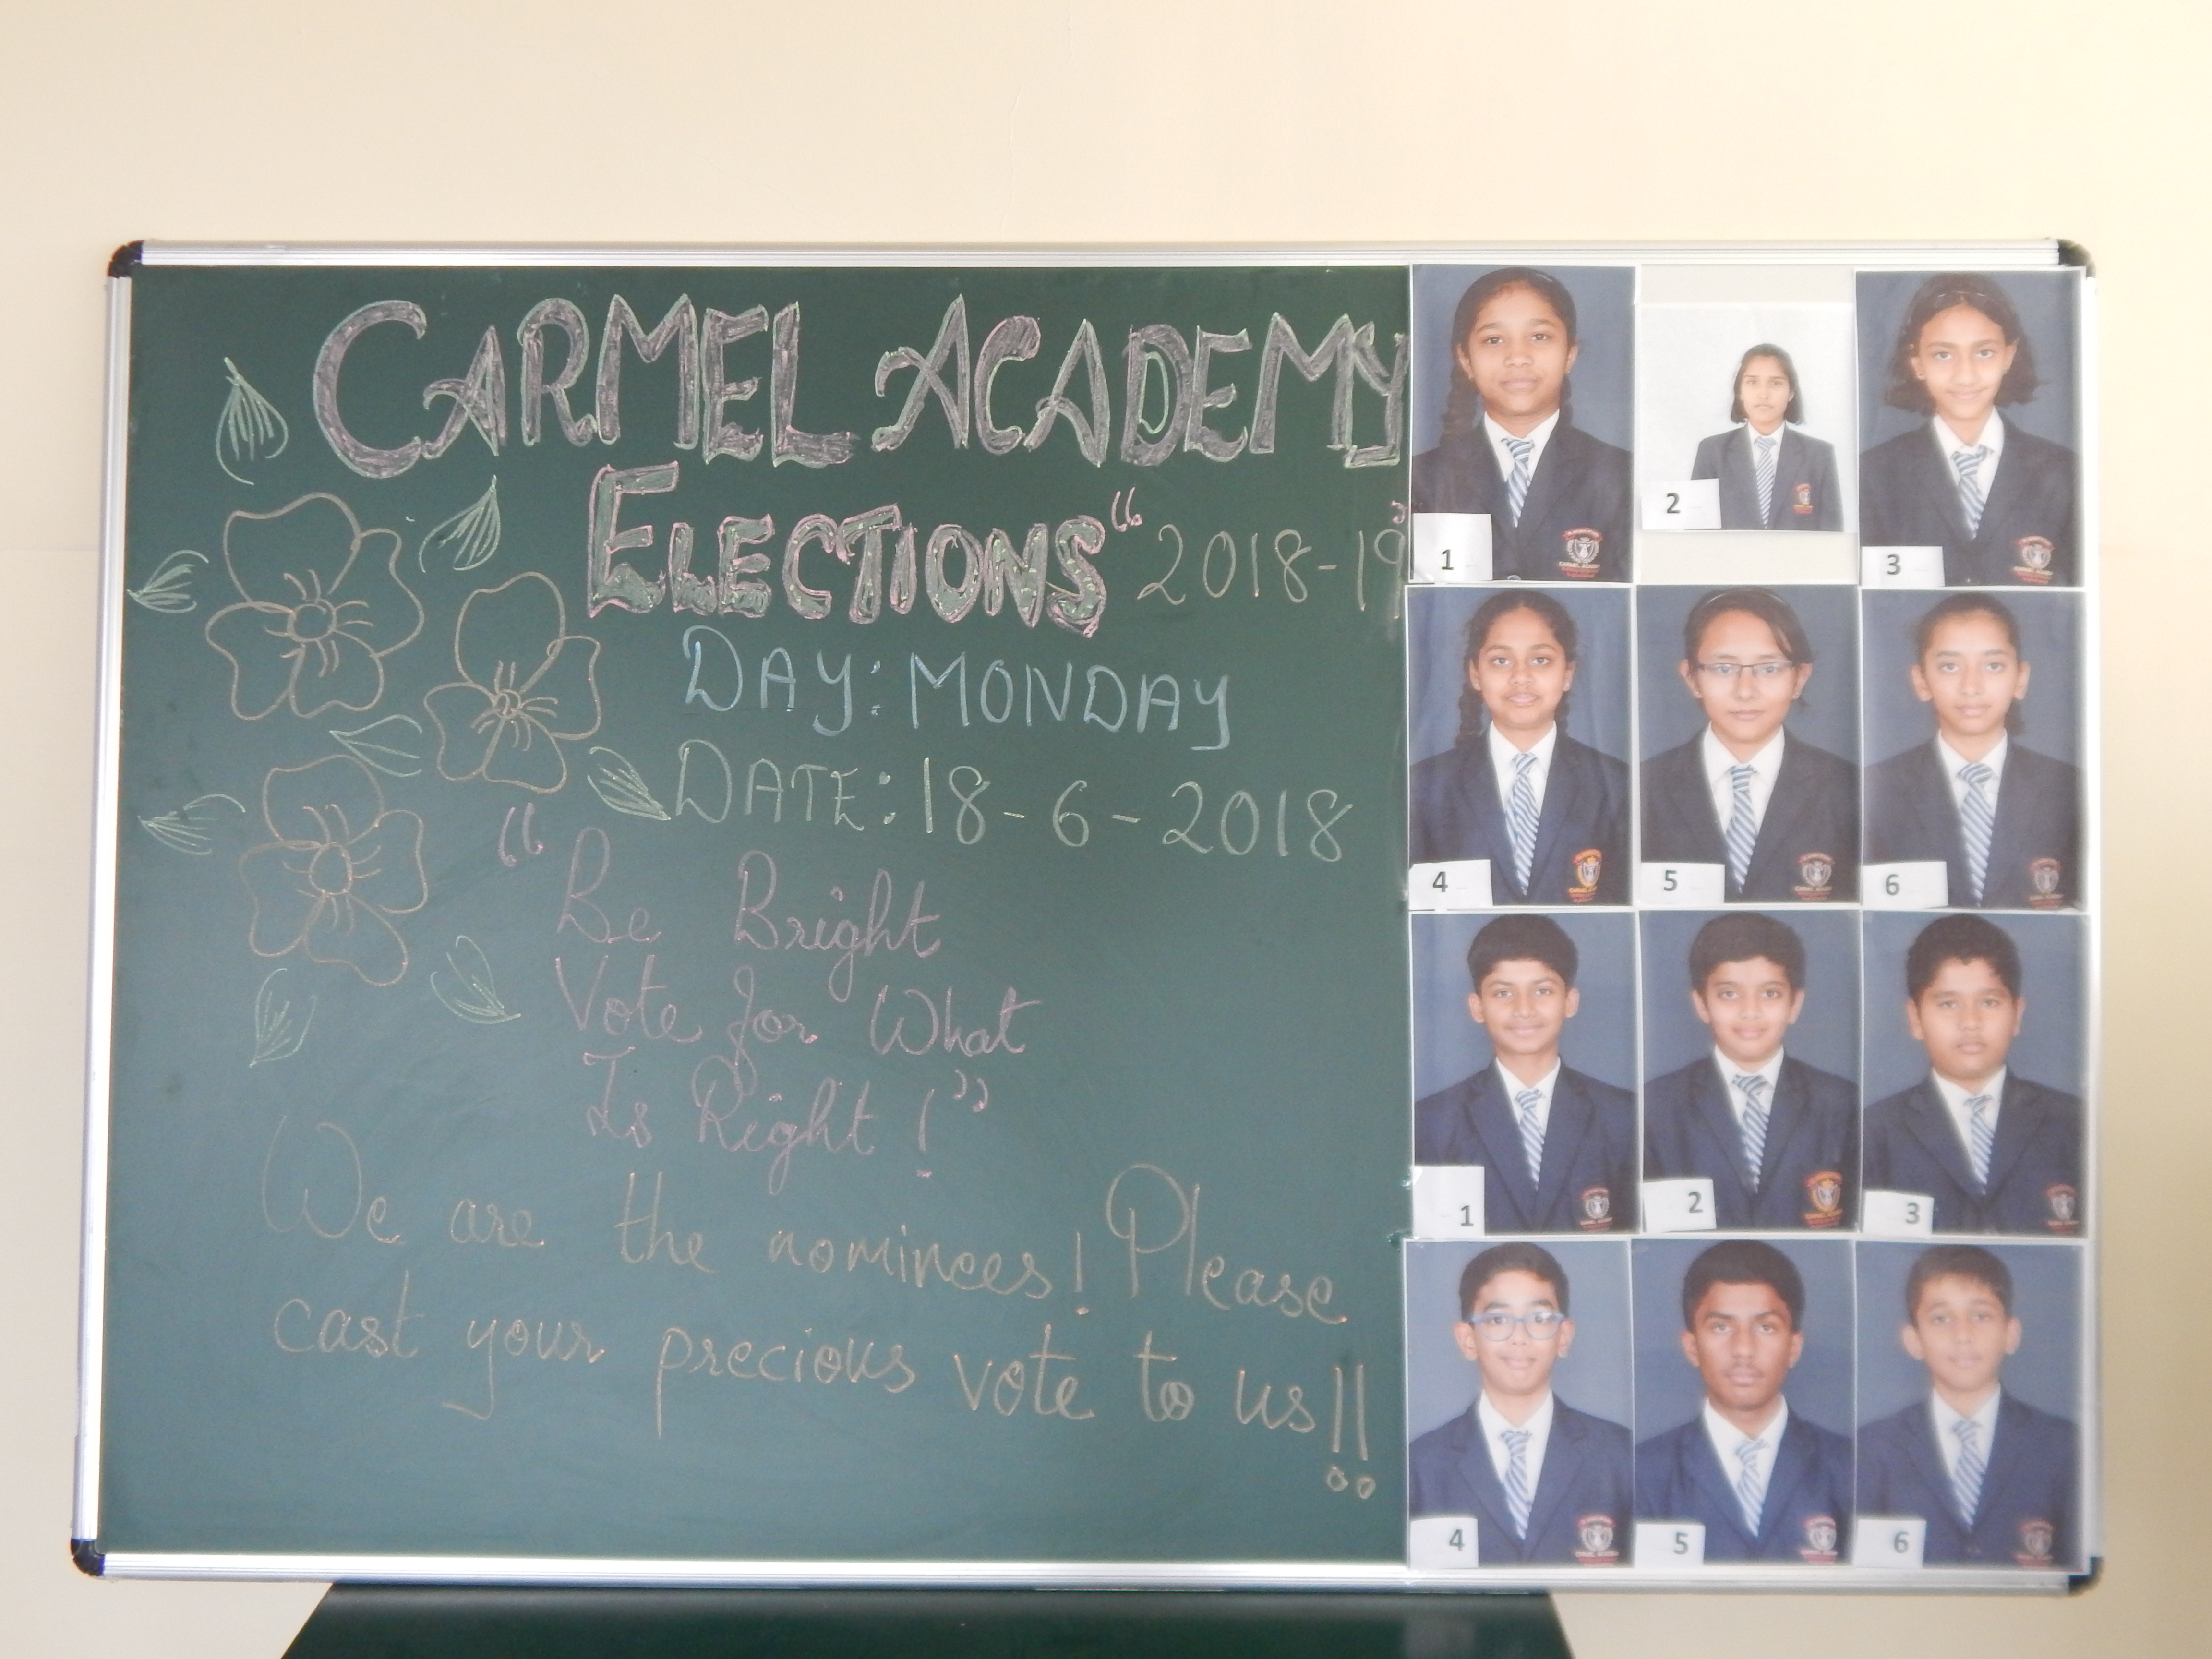 CARMEL ACADEMY
ELECTIONS "2018-19"
DAY: MONDAY
DATE: 18-6-2018
"Be Bright
Vote for What
Is Right!"
We are the nominees! Please
cast your precious vote to us!!
1
2
3
4
5
6
1
2
3
4
5
6